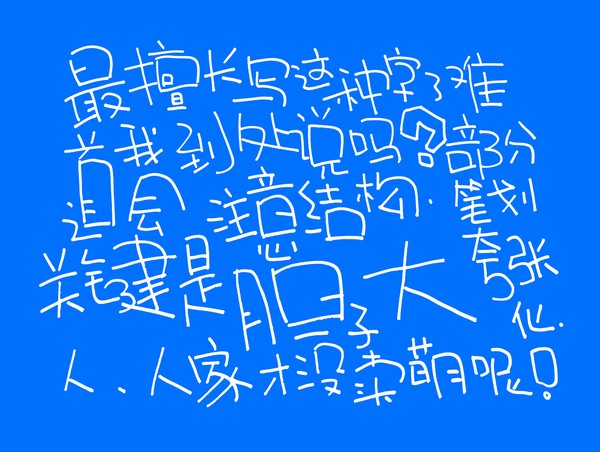 最擅长写这种字了难
道我到处说吗?部份
会注意结构.笔划
关键是胆子大夸张
化.
人、人家才没卖萌呢!